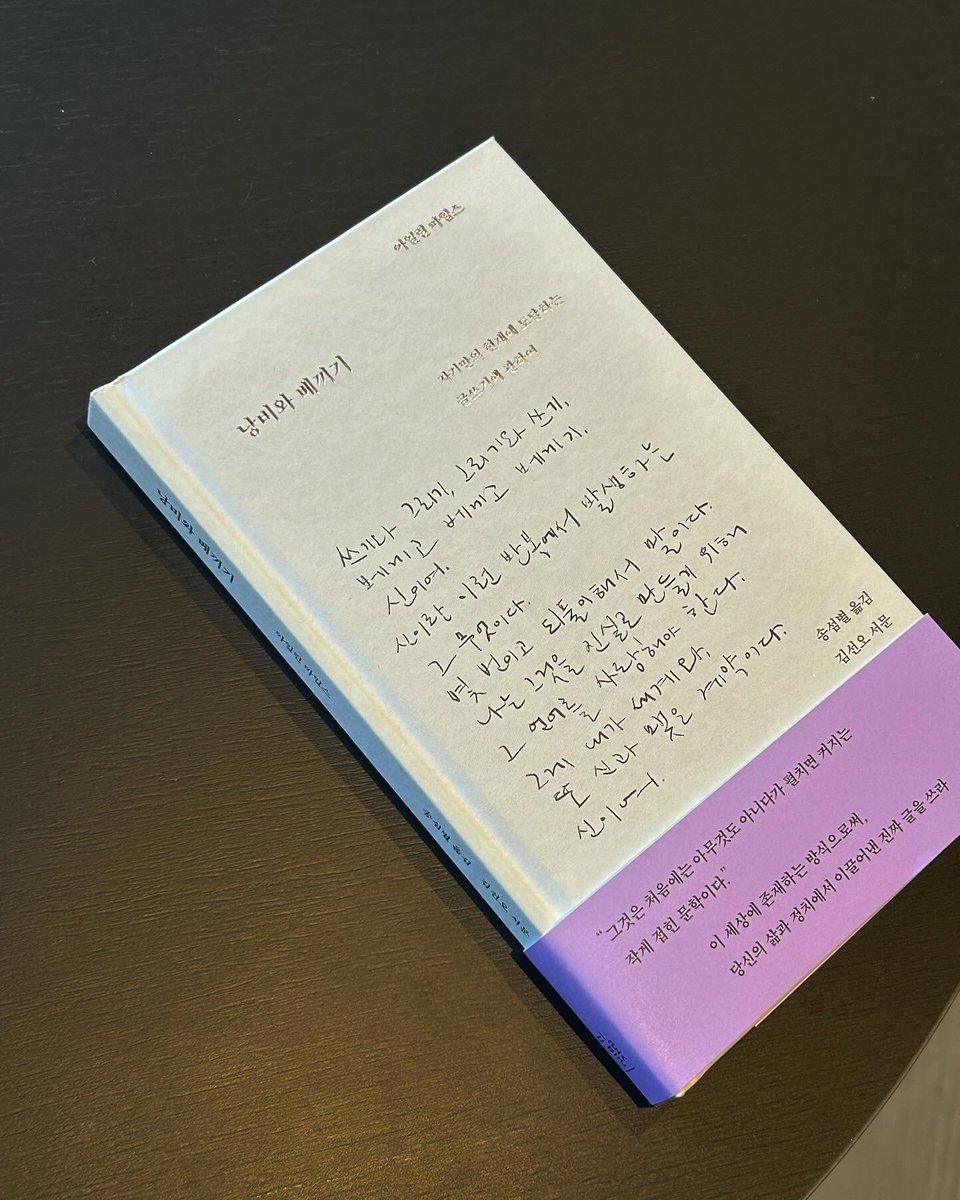 아일린 마일스
낭비와 베끼기
자기만의 현재에 도달하는
글쓰기에 관하여
쓰기다 그리기, 그리기와 쓰기,
베끼고 베끼고 베끼기.
신이여.
신이란 이런 반복에서 발생하는
그 무엇이다.
몇 번이고 되풀이해서 말이다.
나는 그것을 진실로 만들기 위해
그 언어를 사랑해야 한다.
그게 내가 세계와,
또 신과 맺은 계약이다.
신이여.
송섬별 옮김
김선오 서문
“그것은 처음에는 아무것도 아니다가 펼치면 커지는
작게 접힌 문학이다.”
이 세상에 존재하는 방식으로써,
당신의 삶과 정치에서 이끌어낸 진짜 글을 쓰라
낭비와 베끼기
아일린 마일스
송섬별 옮김
김선오 서문